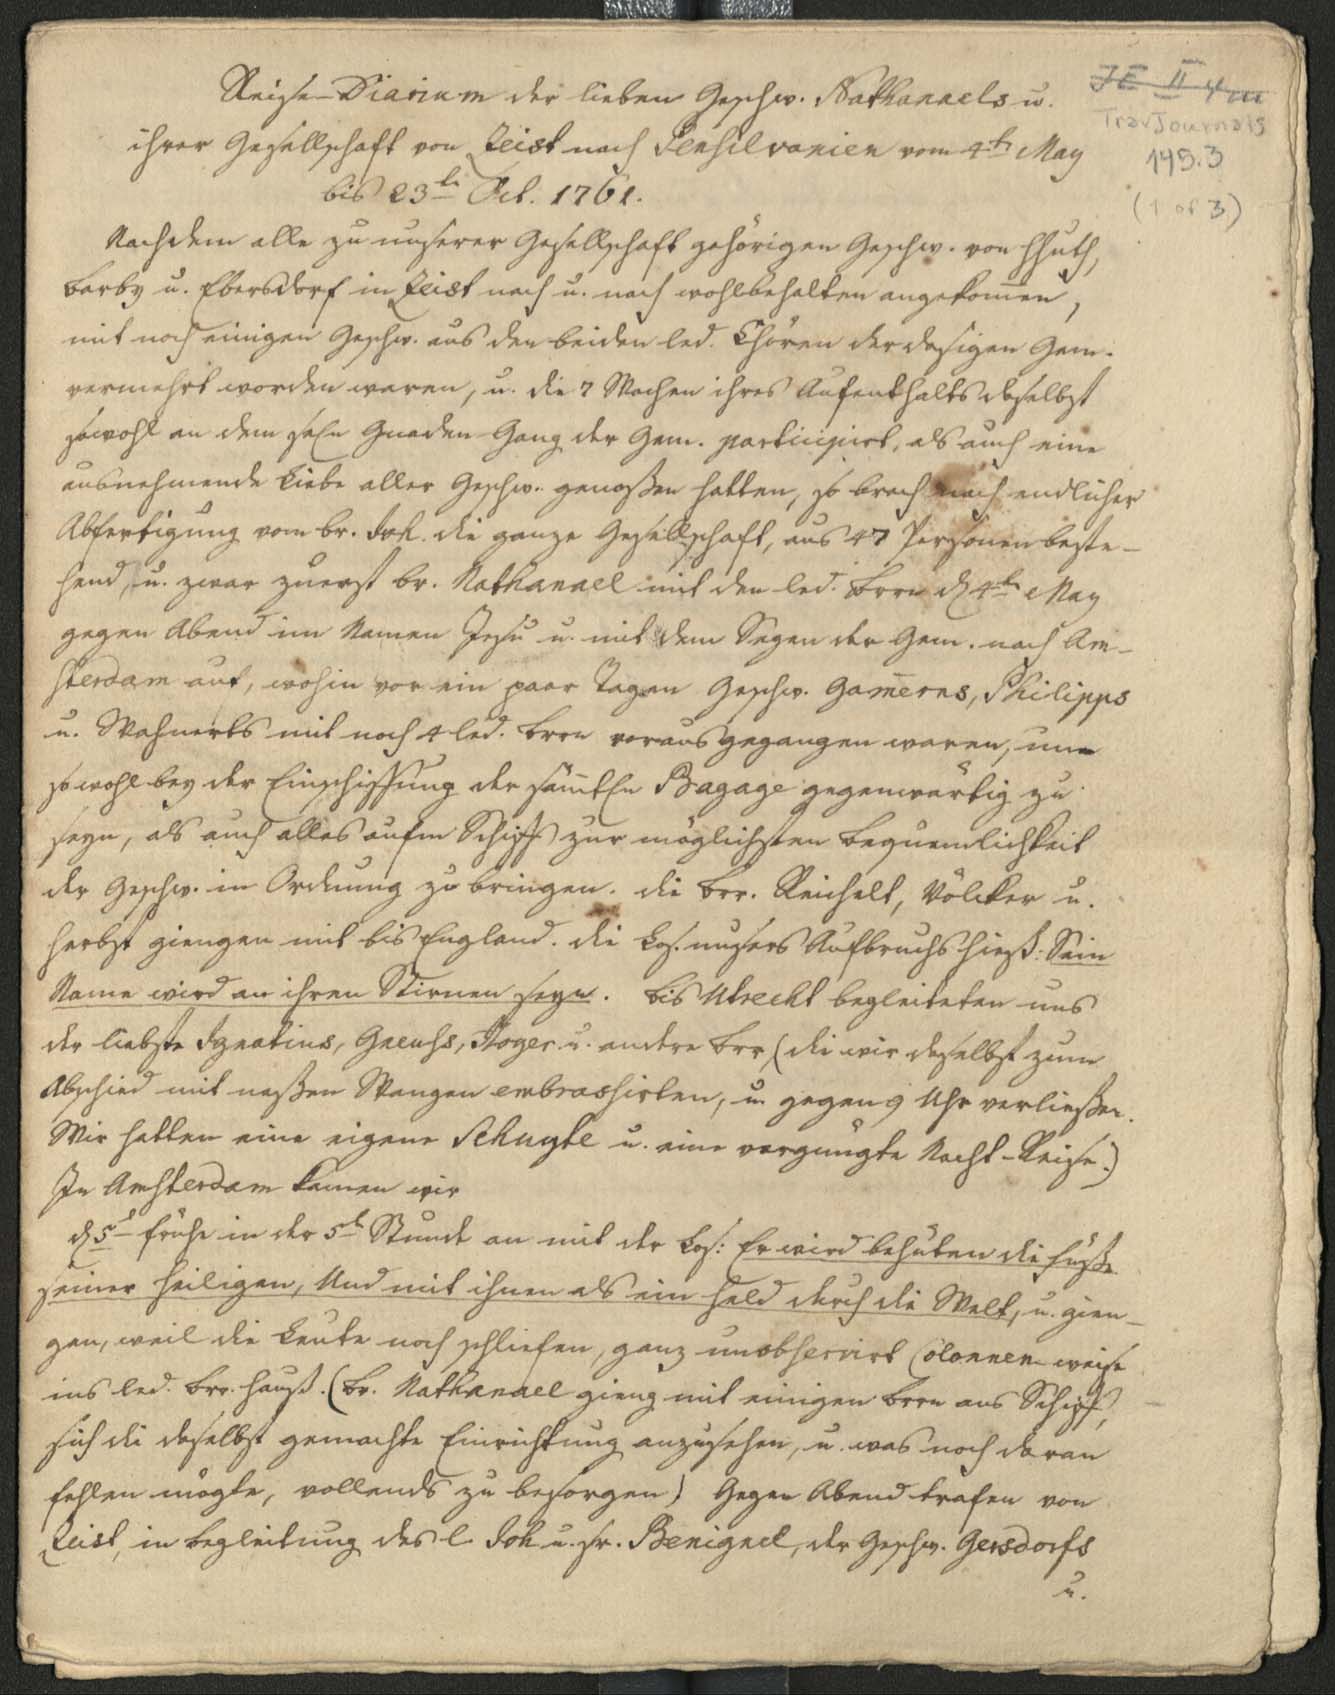 Reise-Diarium der lieben Geschw. Nathanaels u.
ihrer Gesellschaft von Zeist nach Pensilvanien vom 4t May
bis 23tn Oct. 1761.
JE II 4 m
TravJournals
145.3
(1 of 3)
Nachdem alle zu unserer Gesellschaft gehörigen Geschw. von Hhuth,
Barby u. Ebersdorf in Zeist nach u. nach wohlbehalten angekom̄en,
mit noch einigen Geschw. aus den beiden led. Chören der dasigen Gem.
vermehrt worden waren, u. die 7 Wochen ihres Aufenthalts daselbst
sowohl an dem seln Gnaden-Gang der Gem. participirt, als auch eine
ausnehmende Liebe aller Geschw. genoßen hatten, so brach nach endlicher
Abfertigung vom br. Joh. die ganze Gesellschaft, aus 47 Personen beste-
hend, u. zwar zuerst br. Nathanael mit den led. Brrn d 4tn May
gegen Abend im Namen Jesu u. mit dem Segen der Gem. nach Am-
sterdam auf, wohin vor ein paar Tagen Geschw. Gam̄erns, Philipps
u. Wahnerts mit noch 4 led. Brrn vorausgegangen waren, um
sowohl bey der Einschiffung der säm̄tln Bagage gegenwärtig zu
seyn, als auch alles aufm Schiff zur möglichsten Bequemlichkeit
der Geschw. in Ordnung zu bringen. die Brr. Reichelt, Völcker u.
Herbst giengen mit bis England. die Los. unsers Aufbruchs hieß: Sein
Name wird an ihren Stirnen seyn. Bis Utrecht begleiteten uns
der liebste Ignatius, Gneuhs, Roger u. andre Brr, (die wir daselbst zum
Abschied mit naßen Wangen embrassirten, u. gegen 9 Uhr verließen.
Wir hatten eine eigene Schuyte u. eine vergnügte Nacht-Reise.)
In Amsterdam kamen wir
d 5t frühe in der 5t Stunde an mit der Los: Er wird behüten die Füße
seiner Heiligen, Und mit ihnen als ein Held durch die Welt, u. gien-
gen, weil die Leute noch schliefen, ganz unobservirt Colonnen-weise
ins led. Brr. Hauß. (Br. Nathanael gieng mit einigen Brrn ans Schiff,
sich die daselbst gemachte Einrichtung anzusehen, u. was noch daran
fehlen mögte, vollends zu besorgen) Gegen Abend trafen von
Zeist, in Begleitung des l. Joh. u. sr. Benignel, der Geschw. Gersdorfs
u.